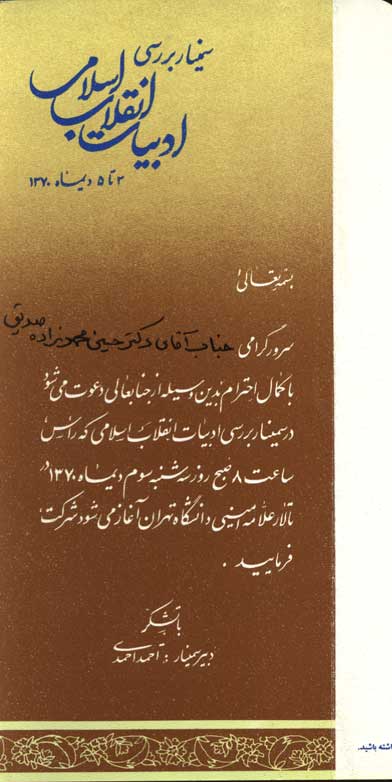 سمینار بررسی
ادبیات انقلاب اسلامی
۳ تا ۵ دیماه ۱۳۷۰
بسمه تعالی
سرور گرامی جناب آقای دکتر حسین محمودزاده صدیق
با کمال احترام بدین وسیله از جنابعالی دعوت می شود
در سمینار بررسی ادبیات انقلاب اسلامی که رأس
ساعت ۸ صبح روز سه شنبه سوم دیماه ۱۳۷۰ در
تالار علامه امینی دانشگاه تهران آغاز می شود شرکت
فرمایید .
با تشکر
دبیر سمینار : احمد احمدی
داشته باشید.